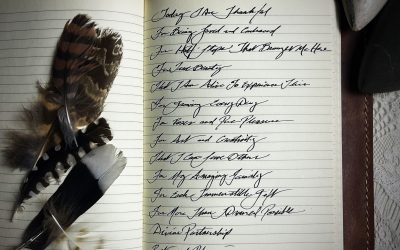 Today I Am Thankful
For Being Loved and Embraced
For Hope That Brought Me Here
For True Beauty
That I Am Alive To Experience This
For Joy Every Day
For and Pure Pleasure
For Art and Creativity
That I Can Love Others
For My Amazing Family
For Each Gift
For More Than Possible
Divine Partnership